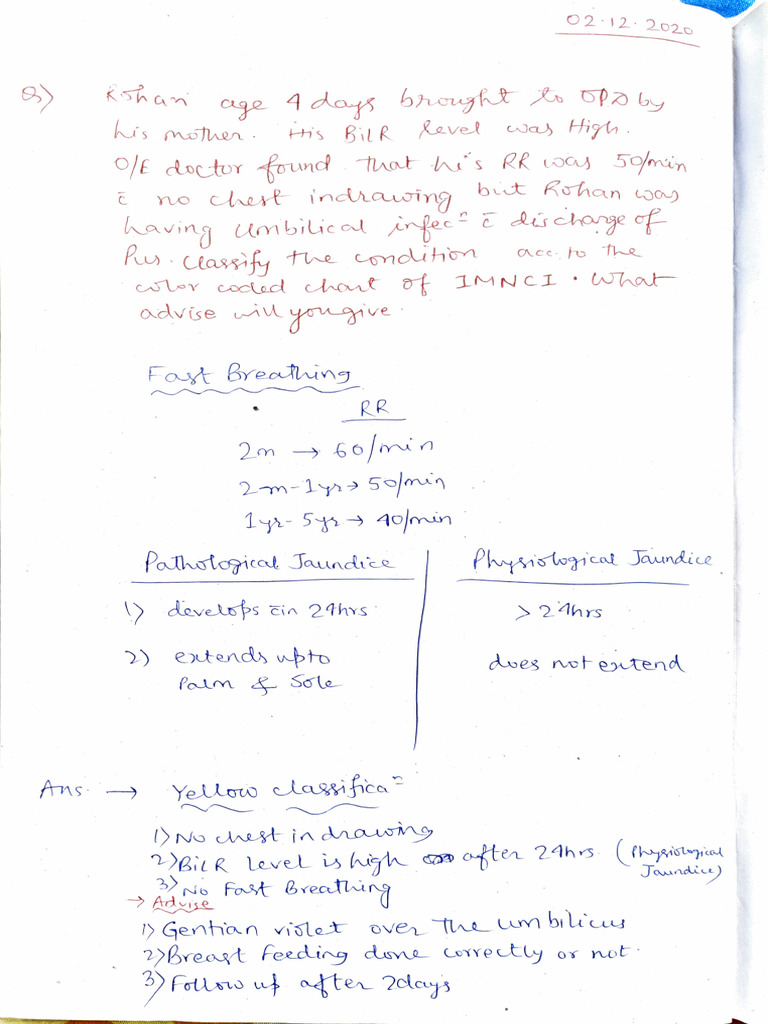 02.12.2020
Q) Rohan age 4 days brought to OPD by
his mother. His BilR level was High.
O/E doctor found that his RR was 50/min
c̄ no chest indrawing but Rohan was
having Umbilical infecⁿ c̄ discharge of
Pus. Classify the condition acc. to the
color coded chart of IMNCI. What
advise will you give.
Fast Breathing
RR
2m → 60/min
2m-1yr → 50/min
1yr-5yr → 40/min
Pathological Jaundice
1) develops c̄in 24hrs
2) extends upto
Palm & Sole
Physiological Jaundice
> 24hrs
does not extend
Ans. → Yellow classificaⁿ
1) No chest indrawing
2) BilR level is high after 24hrs. (Physiological
Jaundice)
3) No Fast Breathing
→ Advise
1) Gentian violet over the umbilicus
2) Breast feeding done correctly or not.
3) Follow up after 2days